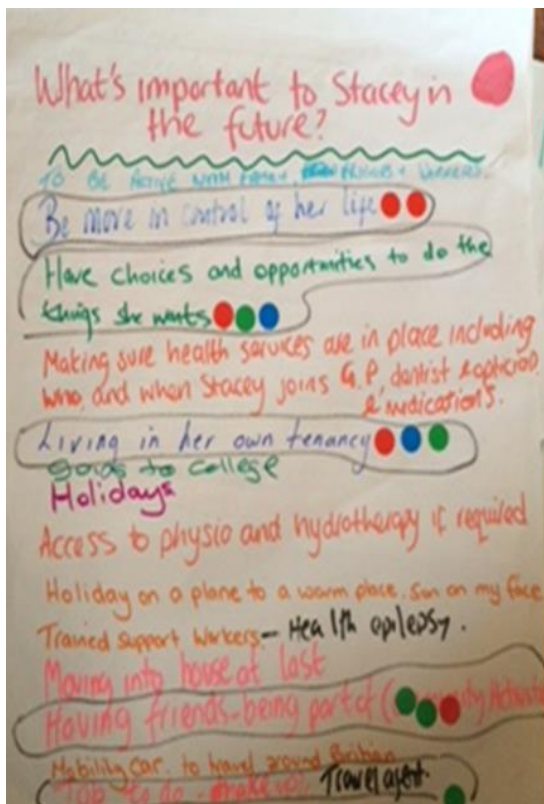 What's important to Stacey in
the future?
TO BE ACTIVE WITH FAMILY, FRIENDS + WORKERS.
Be more in control of her life
Have choices and opportunities to do the
things she wants
Making sure health services are in place including
who, and when Stacey joins G.P, dentist & optician
& medications.
Living in her own tenancy
Going to college
Holidays
Access to physio and hydrotherapy if required
Holiday on a plane to a warm place. Sun on my face
Trained Support Workers - Health epilepsy.
Moving into house at last
Having friends - being part of
Mobility car. to travel around
Job to do - Travel agent.